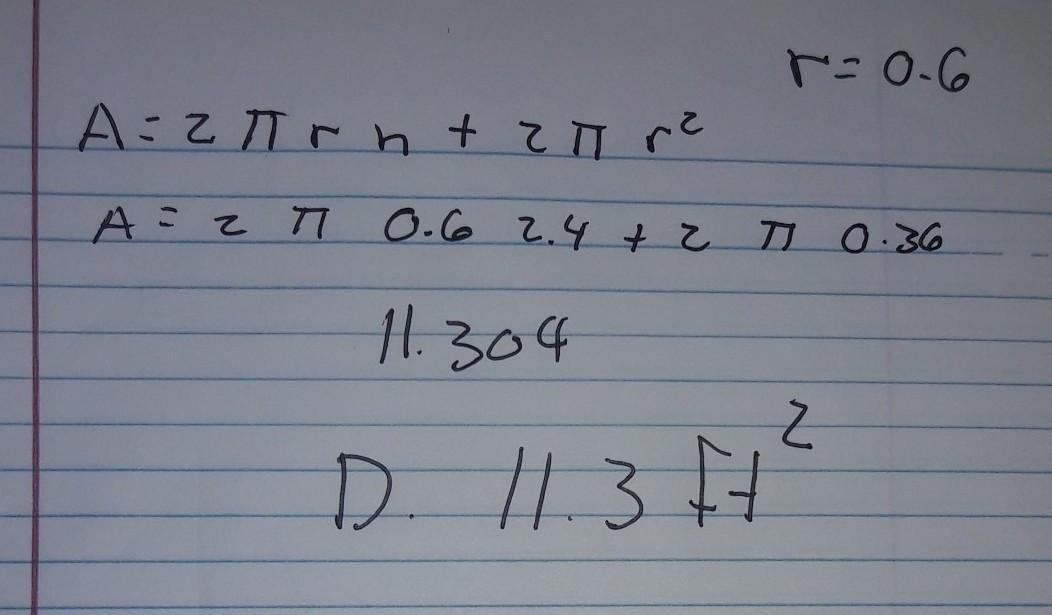 r = 0.6
A = 2 π r h + 2 π r²
A = 2 π 0.6 2.4 + 2 π 0.36
11.304
D. 11.3 ft²